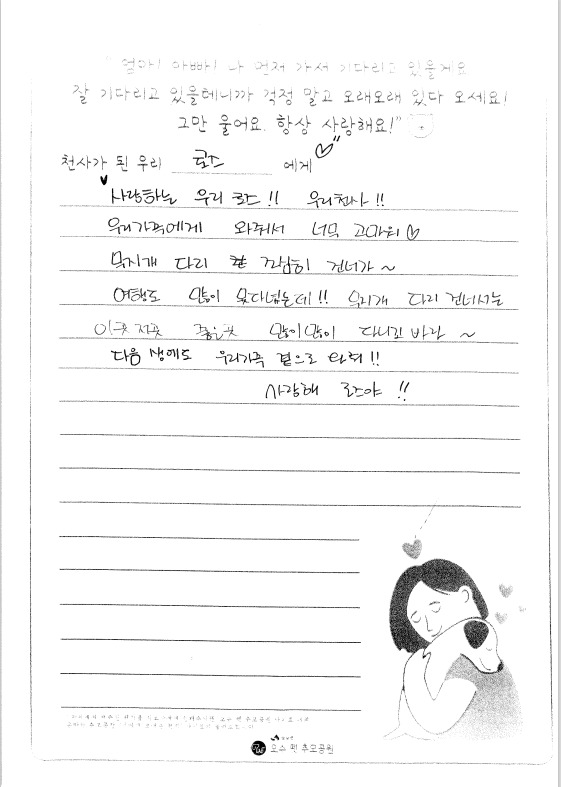 "엄마! 아빠! 나 먼저 가서 기다리고 있을게요
잘 기다리고 있을테니까 걱정 말고 오래오래 있다 오세요!
그만 울어요. 항상 사랑해요!"
천사가 된 우리 로즈 에게
사랑하는 우리 로즈!! 우리천사!!
우리가족에게 와줘서 너무 고마워
무지개 다리 조심히 건너가~
많이 못다녔는데!! 무지개 다리 건너서는
이곳 저곳 좋은곳 많이많이 다니길 바라~
다음 생에도 우리가족 곁으로 와줘!!
사랑해 로즈야!!
오수 펫 추모공원